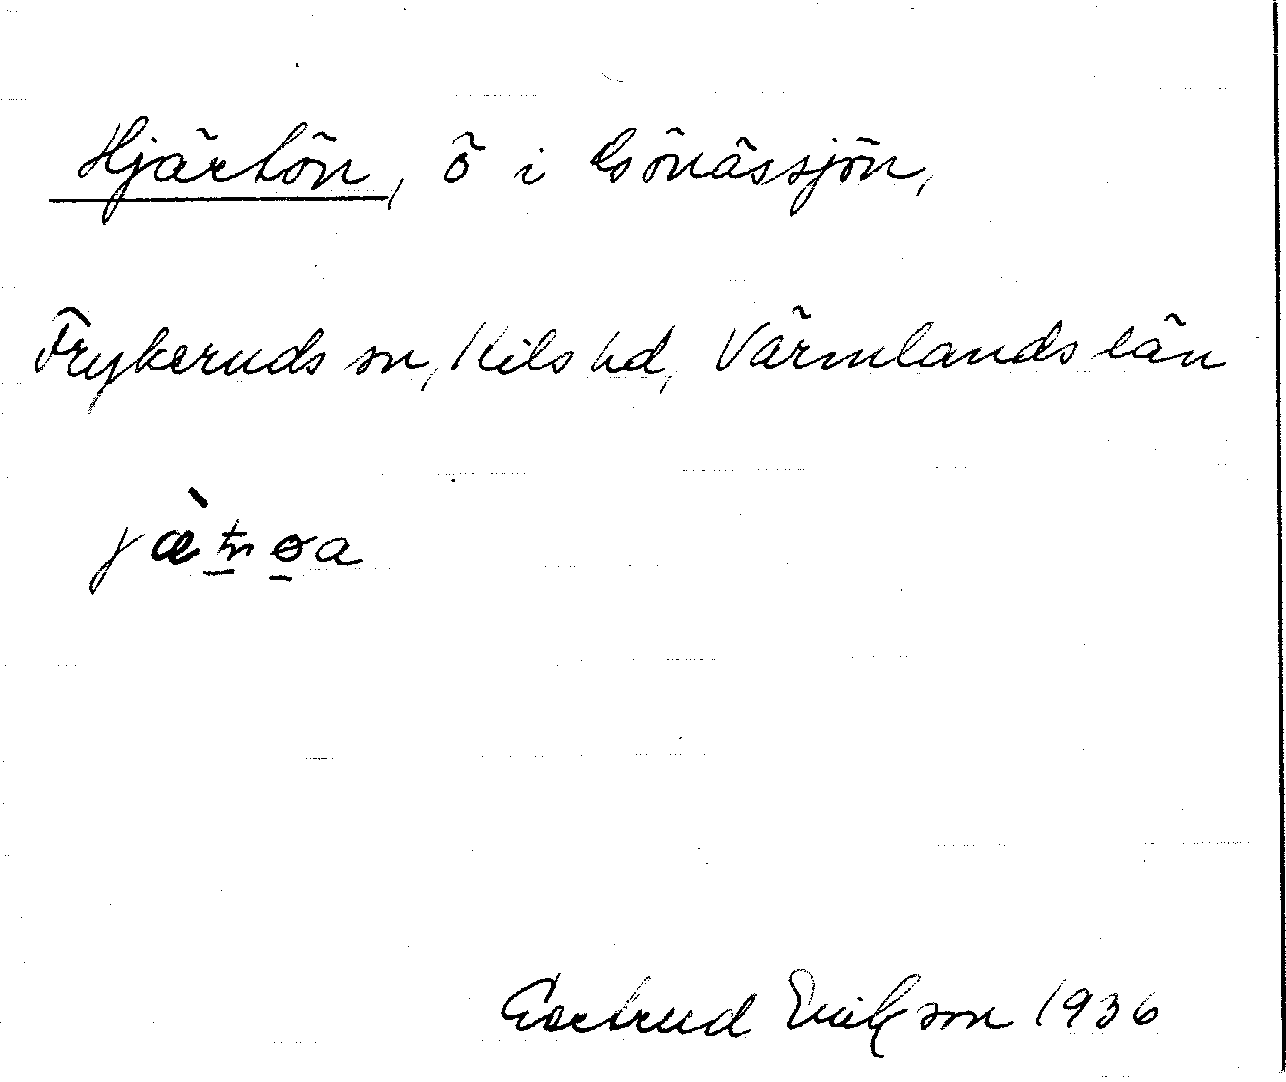 Hjärtön, ö i Gönässjön,
Frykeruds sn, Kils hd, Värmlands län
Gertrud Erikson 1936